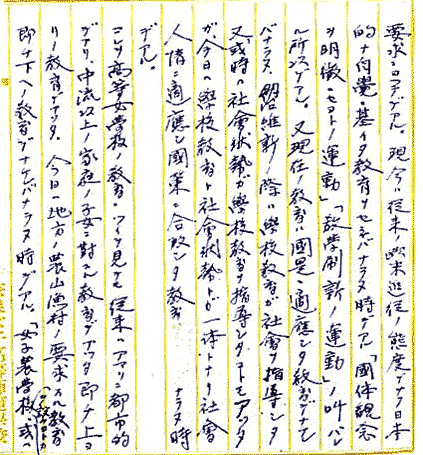 要求スル所デアル。現今ハ従来ノ欧米追従ノ態度デナク日本
的ナ自覚ニ基イタ教育ヲセネバナラヌ時デアル「国体観念
ヲ明徴ニセヨトノ運動」「教学刷新ノ運動」ノ叫バレ
ル所以デアル。又現在ノ教育ハ國是ニ適應シタ教育デナケレ
バナラヌ。明治維新ノ際ハ學校教育ガ社會ヲ指導シタ
又或時ハ社會状勢ガ學校教育ヲ指導シタコトモアッタ
ガ、今日ハ學校教育ト社會状勢トガ一体トナリ社會
人情ニ適應シ國策ニ合致シタ教育 ナラヌ時
デアル。
ニツ高等女學校ノ教育ニツイテ見テモ従来ハアマリニ都市的
デアリ、中流以上ノ家庭ノ子女ニ対スル教育デアッタ即チ上ヨ
リノ教育デアッタ。今日ハ地方ノ農山漁村ノ要求スル教育
即チ下ヘノ教育デナケレバナラヌ時デアル。「女子農学校」或